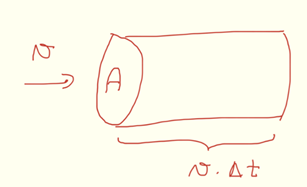 v
A
v · Δt